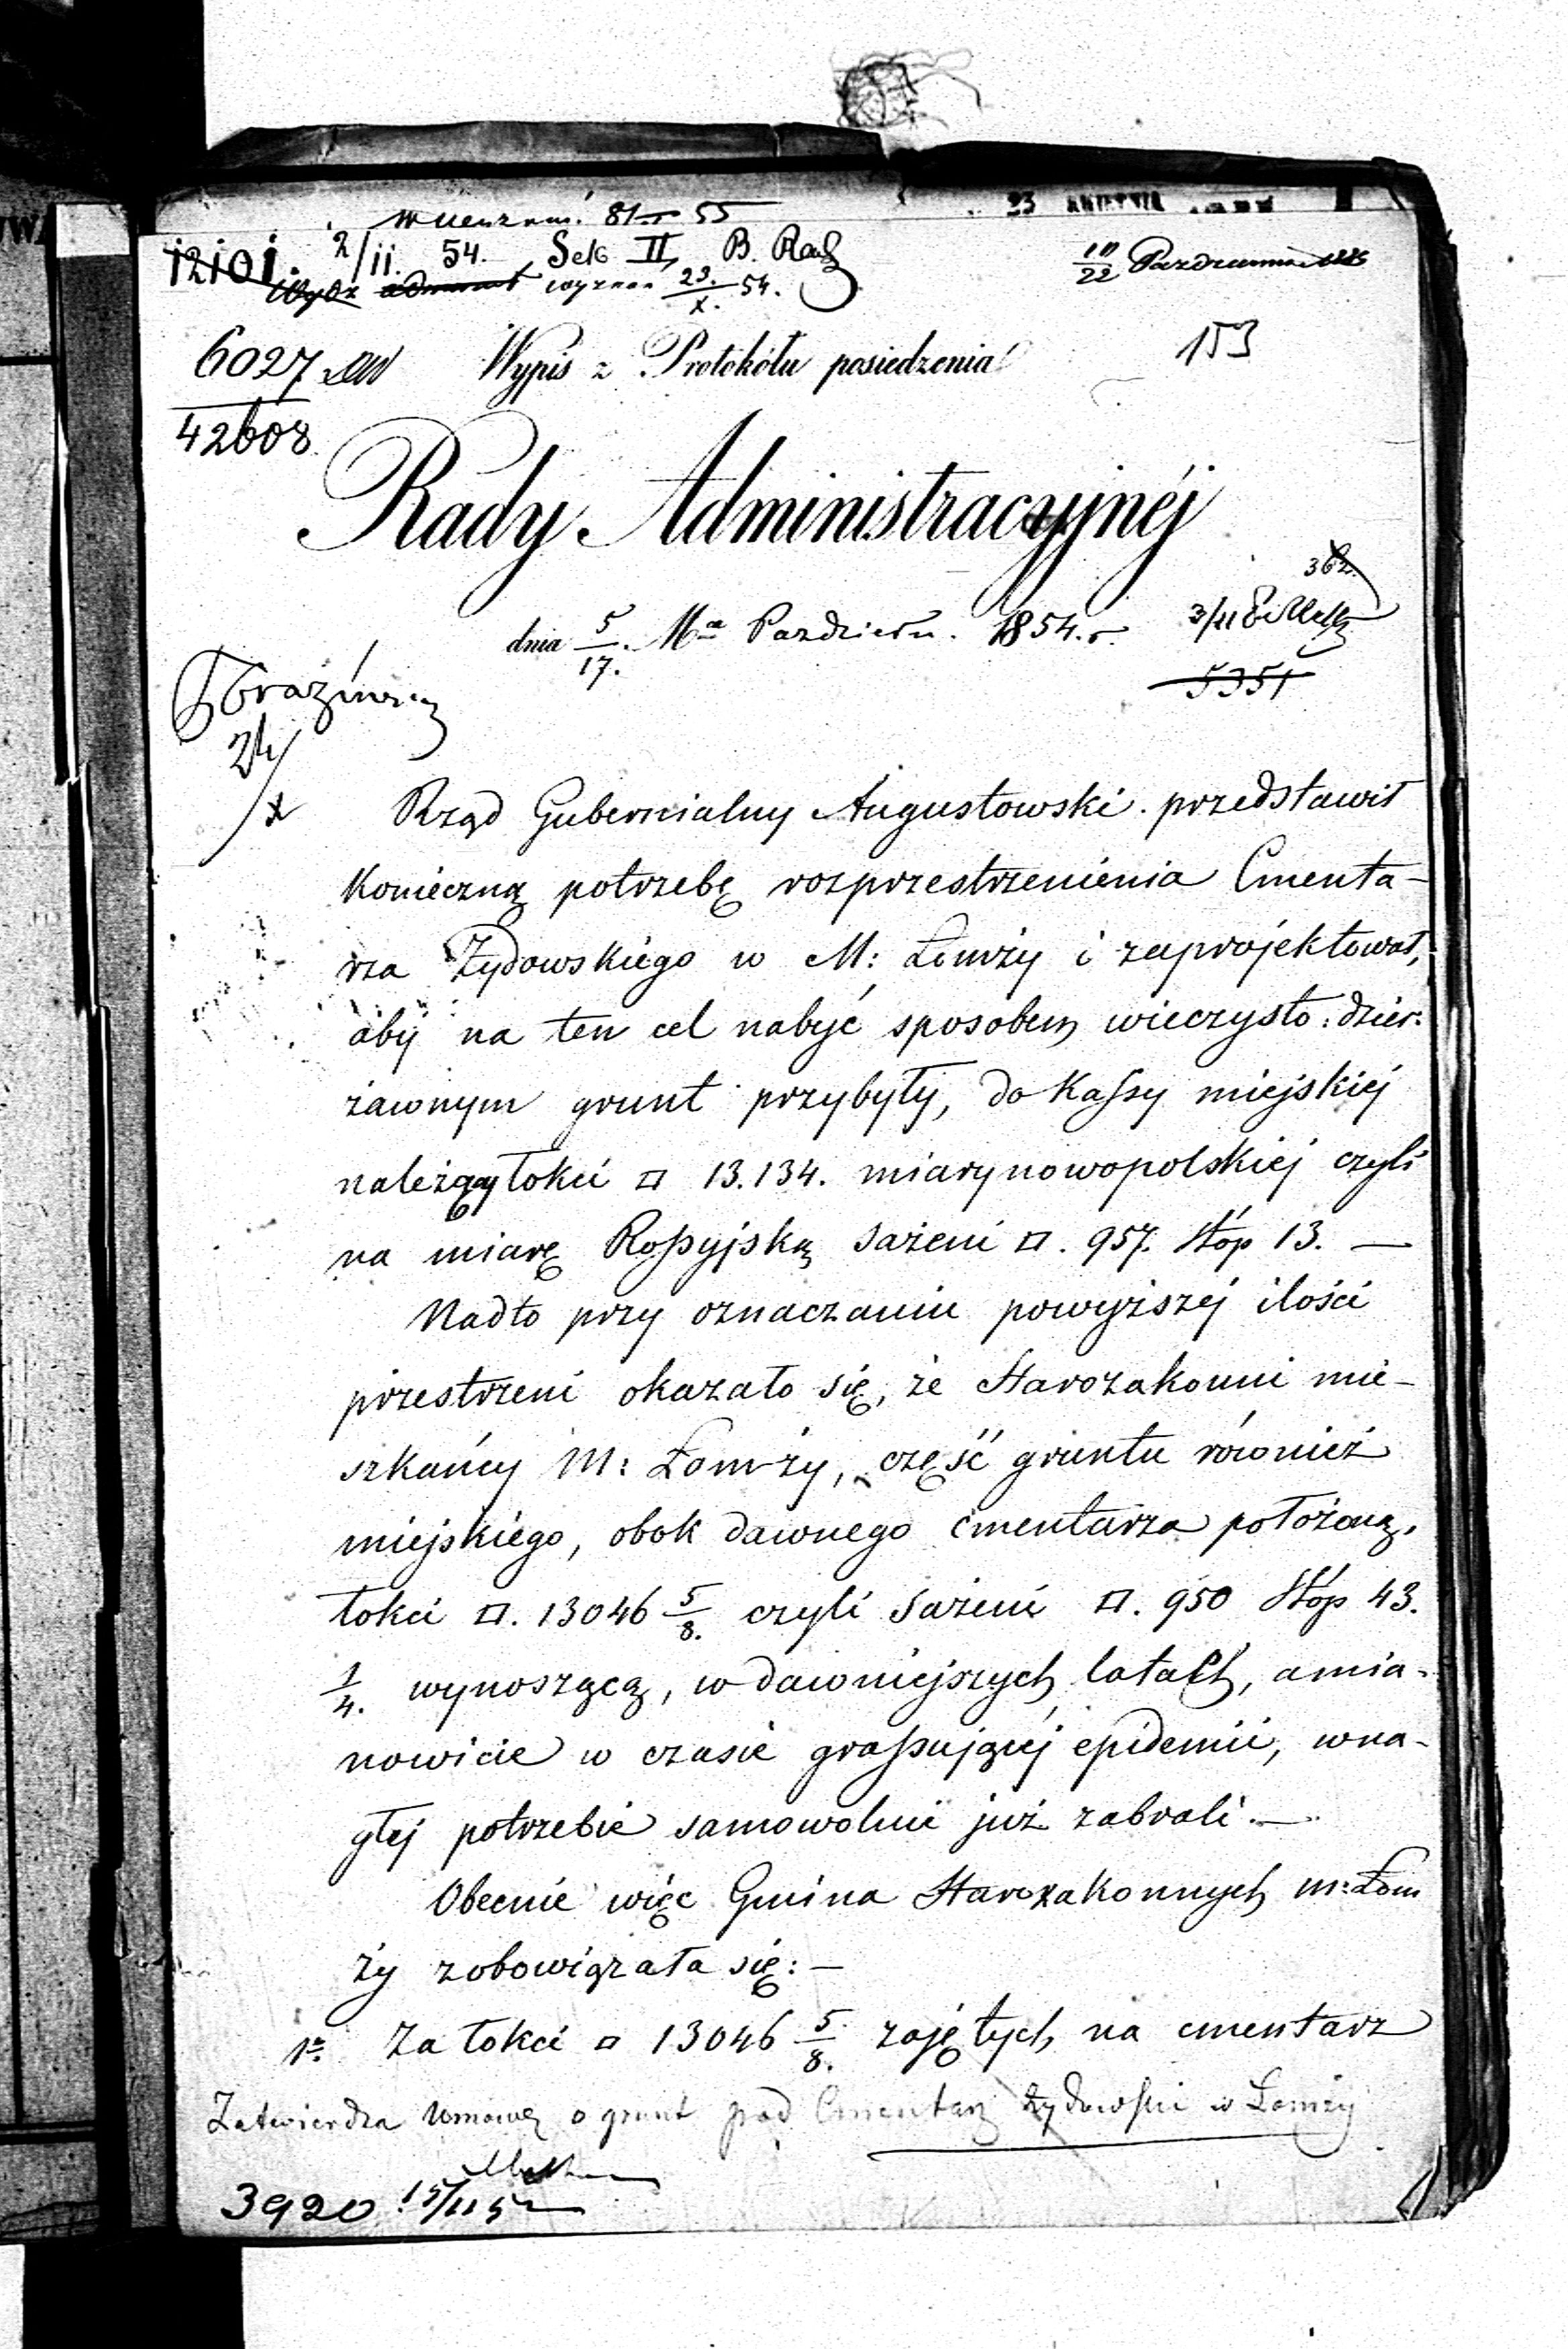 81 55
23 KWIETNIA
12101. 2/11. 54. Sek II, B.
wyznan 23./X. 54.
10/22 Października
6027
42608
Wypis z Protokółu posiedzenia
153
Rady Administracyjnéj
362.
dnia 5/17. Ma Pazdziern. 1854. r.
3/11
5351
24/X
Rząd Gubernialny Augustowski przedstawił
konieczną potrzebę rozprzestrzenienia Cmenta-
rza Żydowskiego w M: Łomży i zaprojektował,
aby na ten cel nabyć sposobem wieczysto: dzier:
żawnym grunt przybyły, do Kassy miejskiej
należący łokci □ 13.134. miary nowopolskiej czyli
na miarę Rossyjską sażeni □. 957. stóp 13. —
Nadto przy oznaczaniu powyższej ilości
przestrzeni okazało się, że Starozakonni mie-
szkańcy M: Łomży, część gruntu również
miejskiego, obok dawnego cmentarza położoną,
łokci □. 13046 5/8. czyli sażeni □. 950 stóp 43.
1/4. wynoszącą, w dawniejszych latach, a mia-
nowicie w czasie grassującej epidemii, w na-
głej potrzebie samowolnie już zabrali. —
Obecnie więc Gmina Starozakonnych m: Łom
ży zobowiązała się: —
1o. Za łokci □ 13046 5/8. zajętych na cmentarz
Zatwierdza umowę o grunt pod Cmentarz żydowski w Łomży
3920 15/11 5